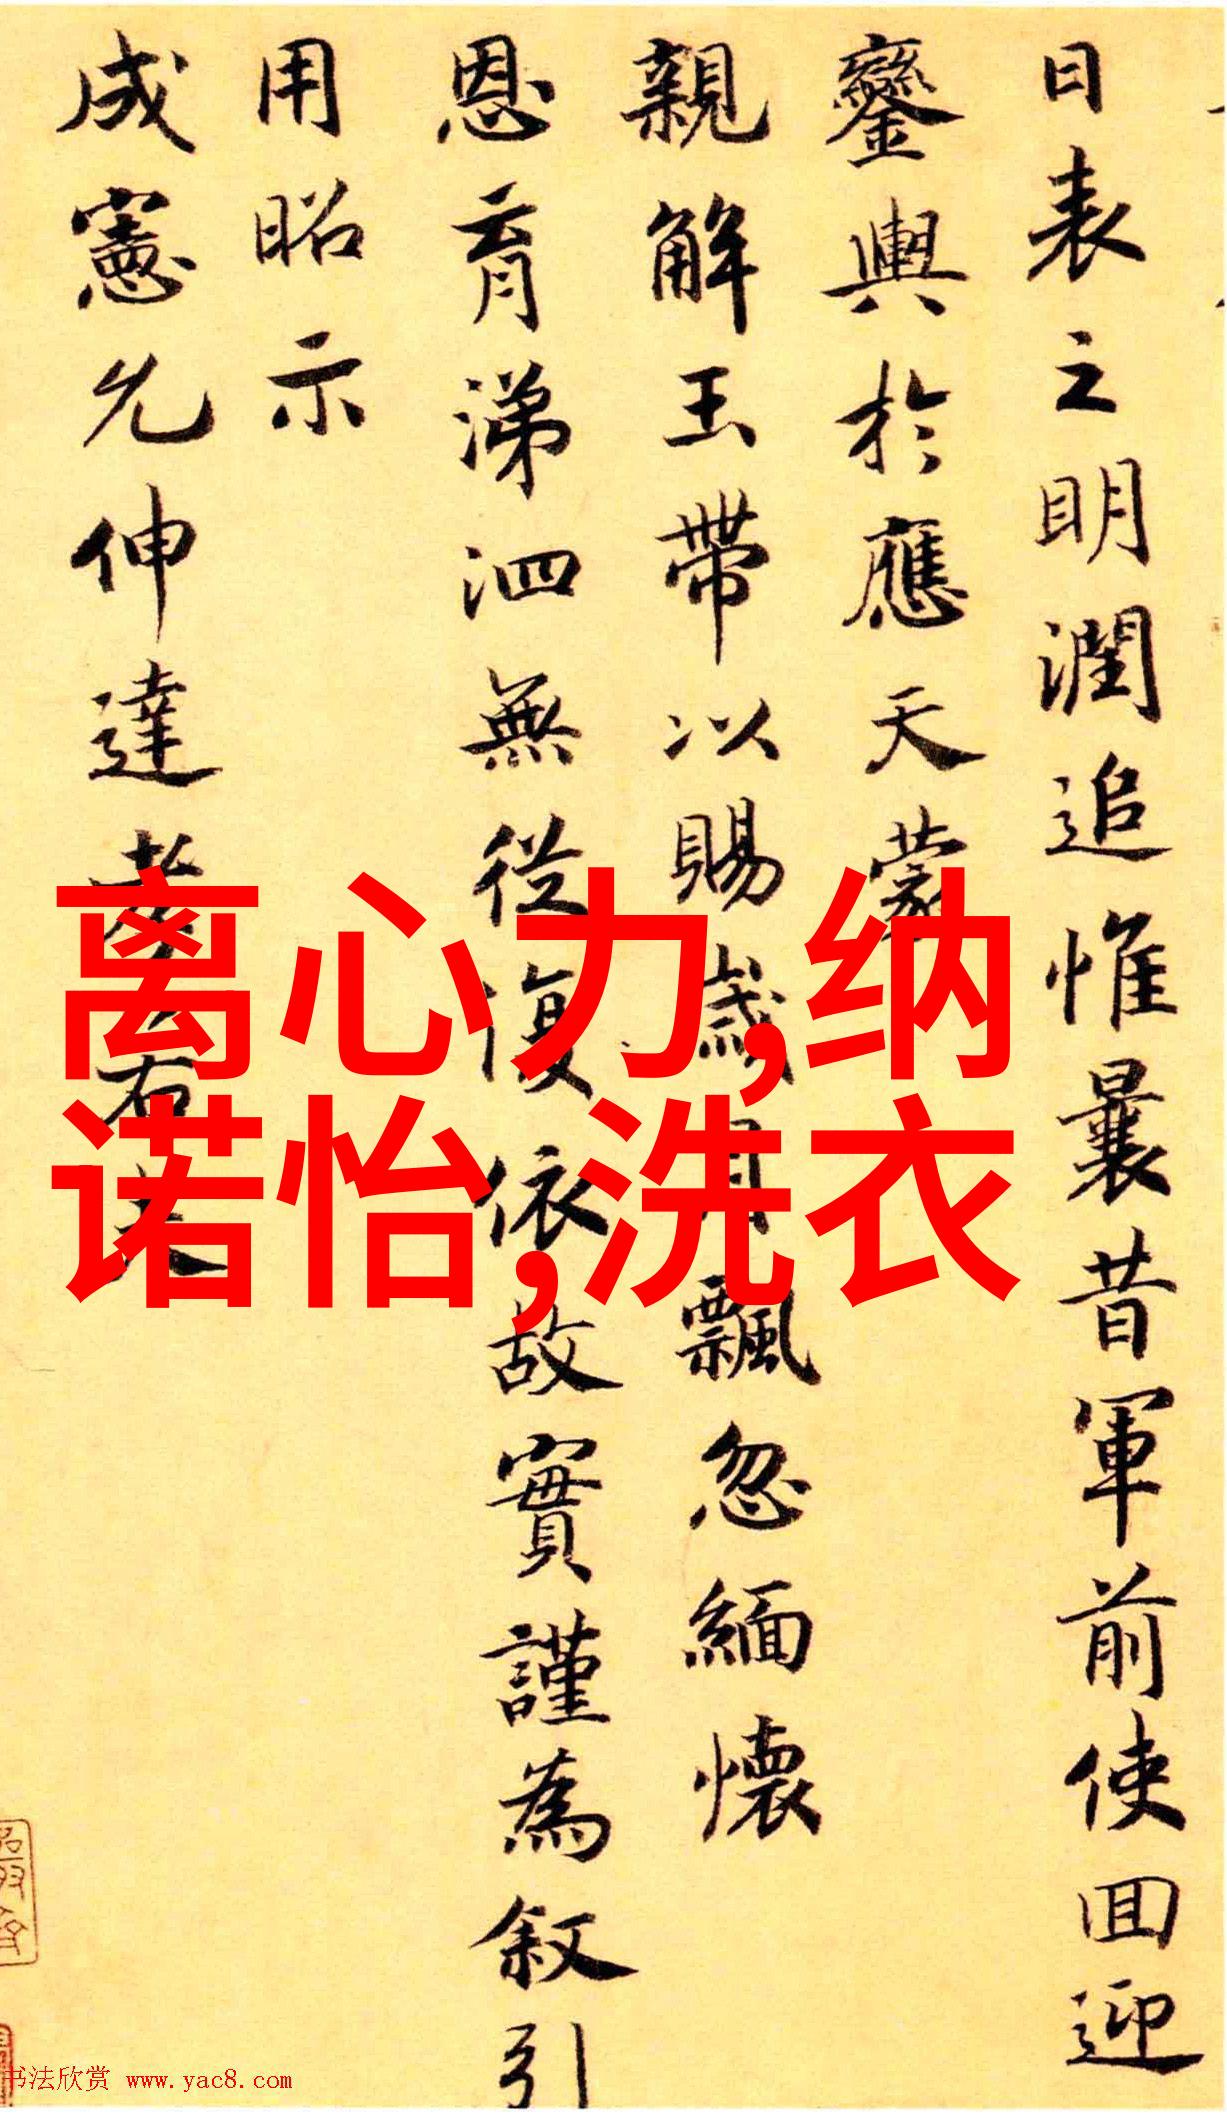 日表之明潤追惟曩昔軍前使回迎
鑾輿於應天蒙
親解玉帶以賜歲月飄忽緬懷
恩育涕泗無從復依故實謹為叙引
用昭示
成憲允伸達孝右
离心力,纳
诺怡,洗衣
书法欣赏 www.yac8.com